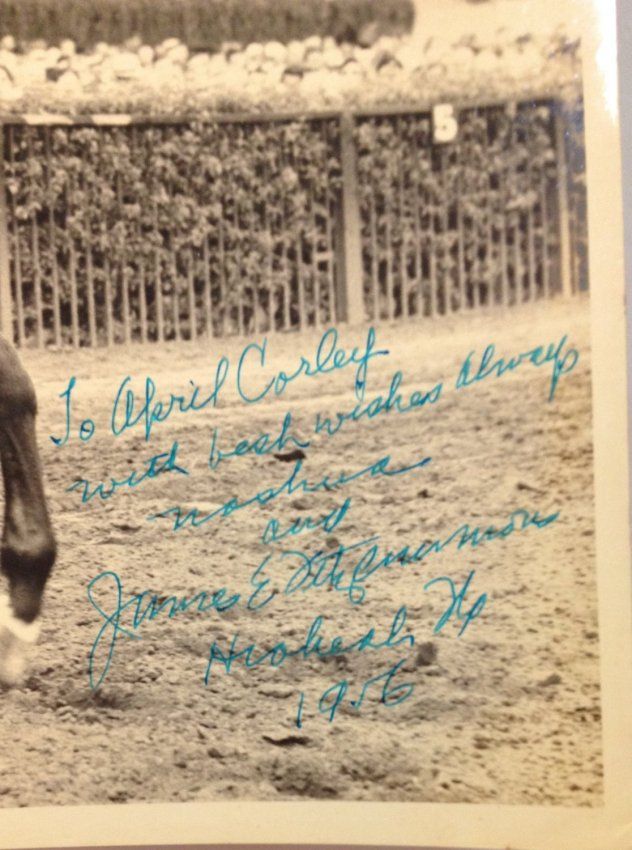 5
To April Corley
with best wishes always
nashua
and
James E Fitzsimmons
Hialeah
1956